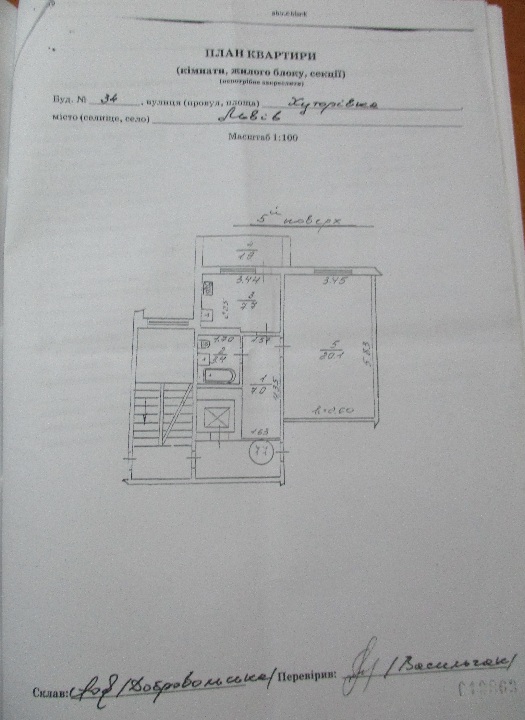 ПЛАН КВАРТИРИ
(кімнати, жилого блоку, секції)
(непотрібне закреслити)
Буд. № 34, вулиця (провул, площа) Хуторівка
місто (селище, село) Львів
Масштаб 1:100
5й поверх
3.44
3.45
3
7.7
2.25
1.70
1.57
2
3.4
5
20.1
5.83
1
7.0
4.35
1.63
Склав: /Добровольська/ Перевірив: /Васильчак/